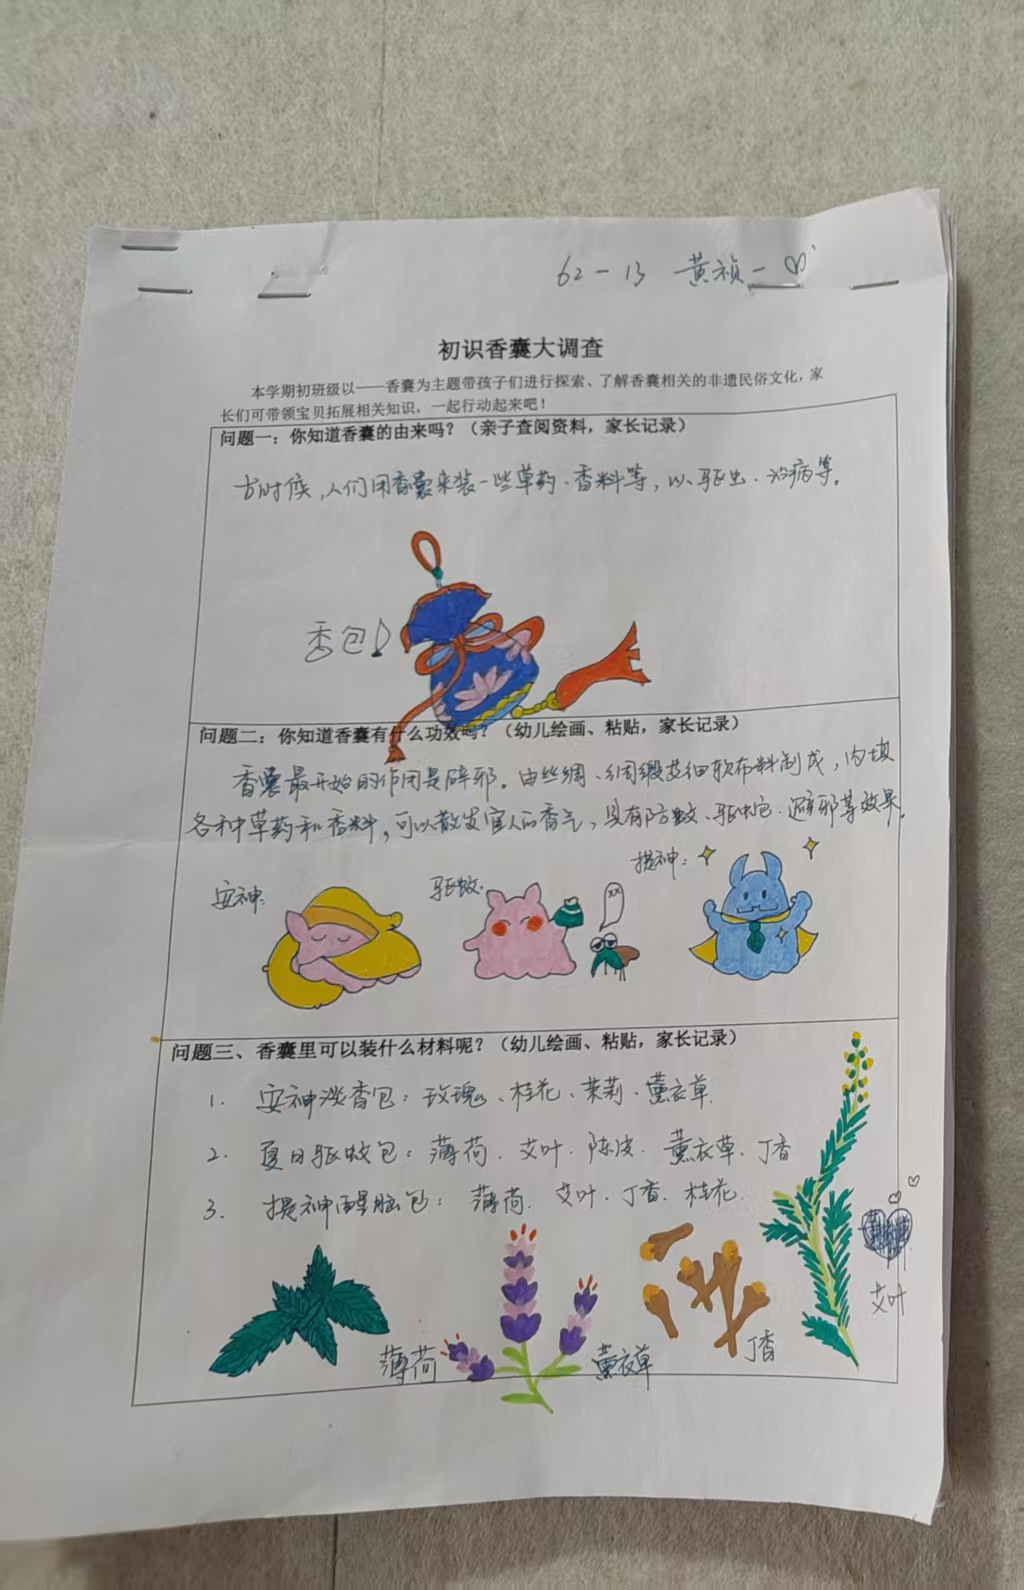 62-13 黄祯一
初识香囊大调查
本学期初班级以——香囊为主题带孩子们进行探索、了解香囊相关的非遗民俗文化，家
长们可带领宝贝拓展相关知识，一起行动起来吧！
问题一：你知道香囊的由来吗？（亲子查阅资料，家长记录）
古时候，人们用香囊来装一些草药、香料等，以驱虫、治病等。
香包
问题二：你知道香囊有什么功效吗？（幼儿绘画、粘贴，家长记录）
香囊最开始的作用是辟邪。由丝绸、绸缎及细软布料制成，内填
各种草药和香料，可以散发宜人的香气，具有防蚊、驱虫、避邪等效果。
安神：
驱蚊：
提神：
xx
问题三、香囊里可以装什么材料呢？（幼儿绘画、粘贴，家长记录）
1. 安神淡香包：玫瑰、桂花、茉莉、薰衣草.
2. 夏日驱蚊包：薄荷. 艾叶. 陈皮. 薰衣草. 丁香
3. 提神醒脑包：薄荷. 艾叶. 丁香. 桂花.
艾叶
薄荷
薰衣草
丁香